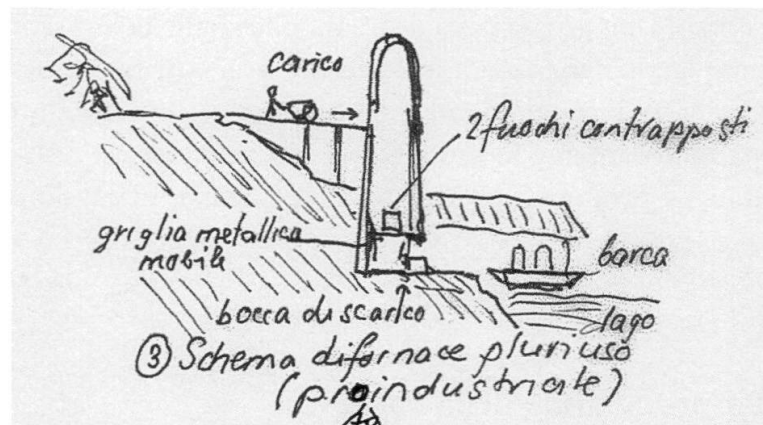 carico
2 fuochi contrapposti
griglia metallica
mobile
barca
bocca di scarico
lago
③ Schema di fornace pluriuso
(proindustriale)